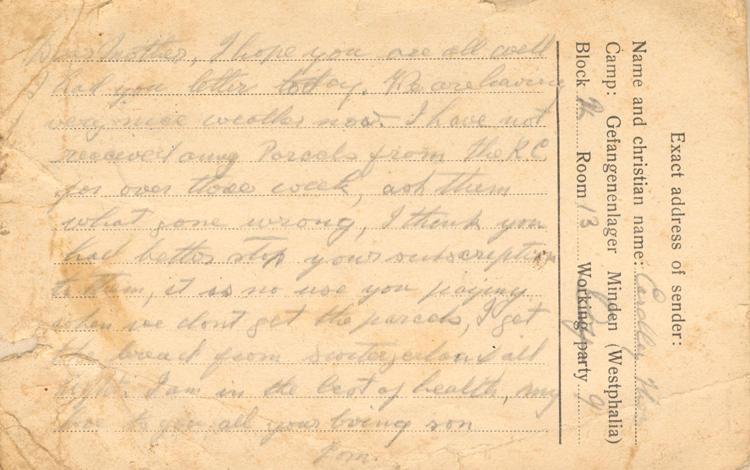 Dear Mother, I hope you are all well
I had you letter today. We are having
very nice weather now. I have not
received any Parcels from the R C
for over three week, ask them
what gone wrong, I think you
had better stop your subscription
to them, it is no use you paying
when we dont get the parcels, I get
the bread from Switzerland all
right. I am in the best of health, my
love to you all your loving son
Tom.
Exact address of sender:
Name and christian name:
Camp: Gefangenenlager Minden (Westphalia)
Block 2 Room 13 Working party